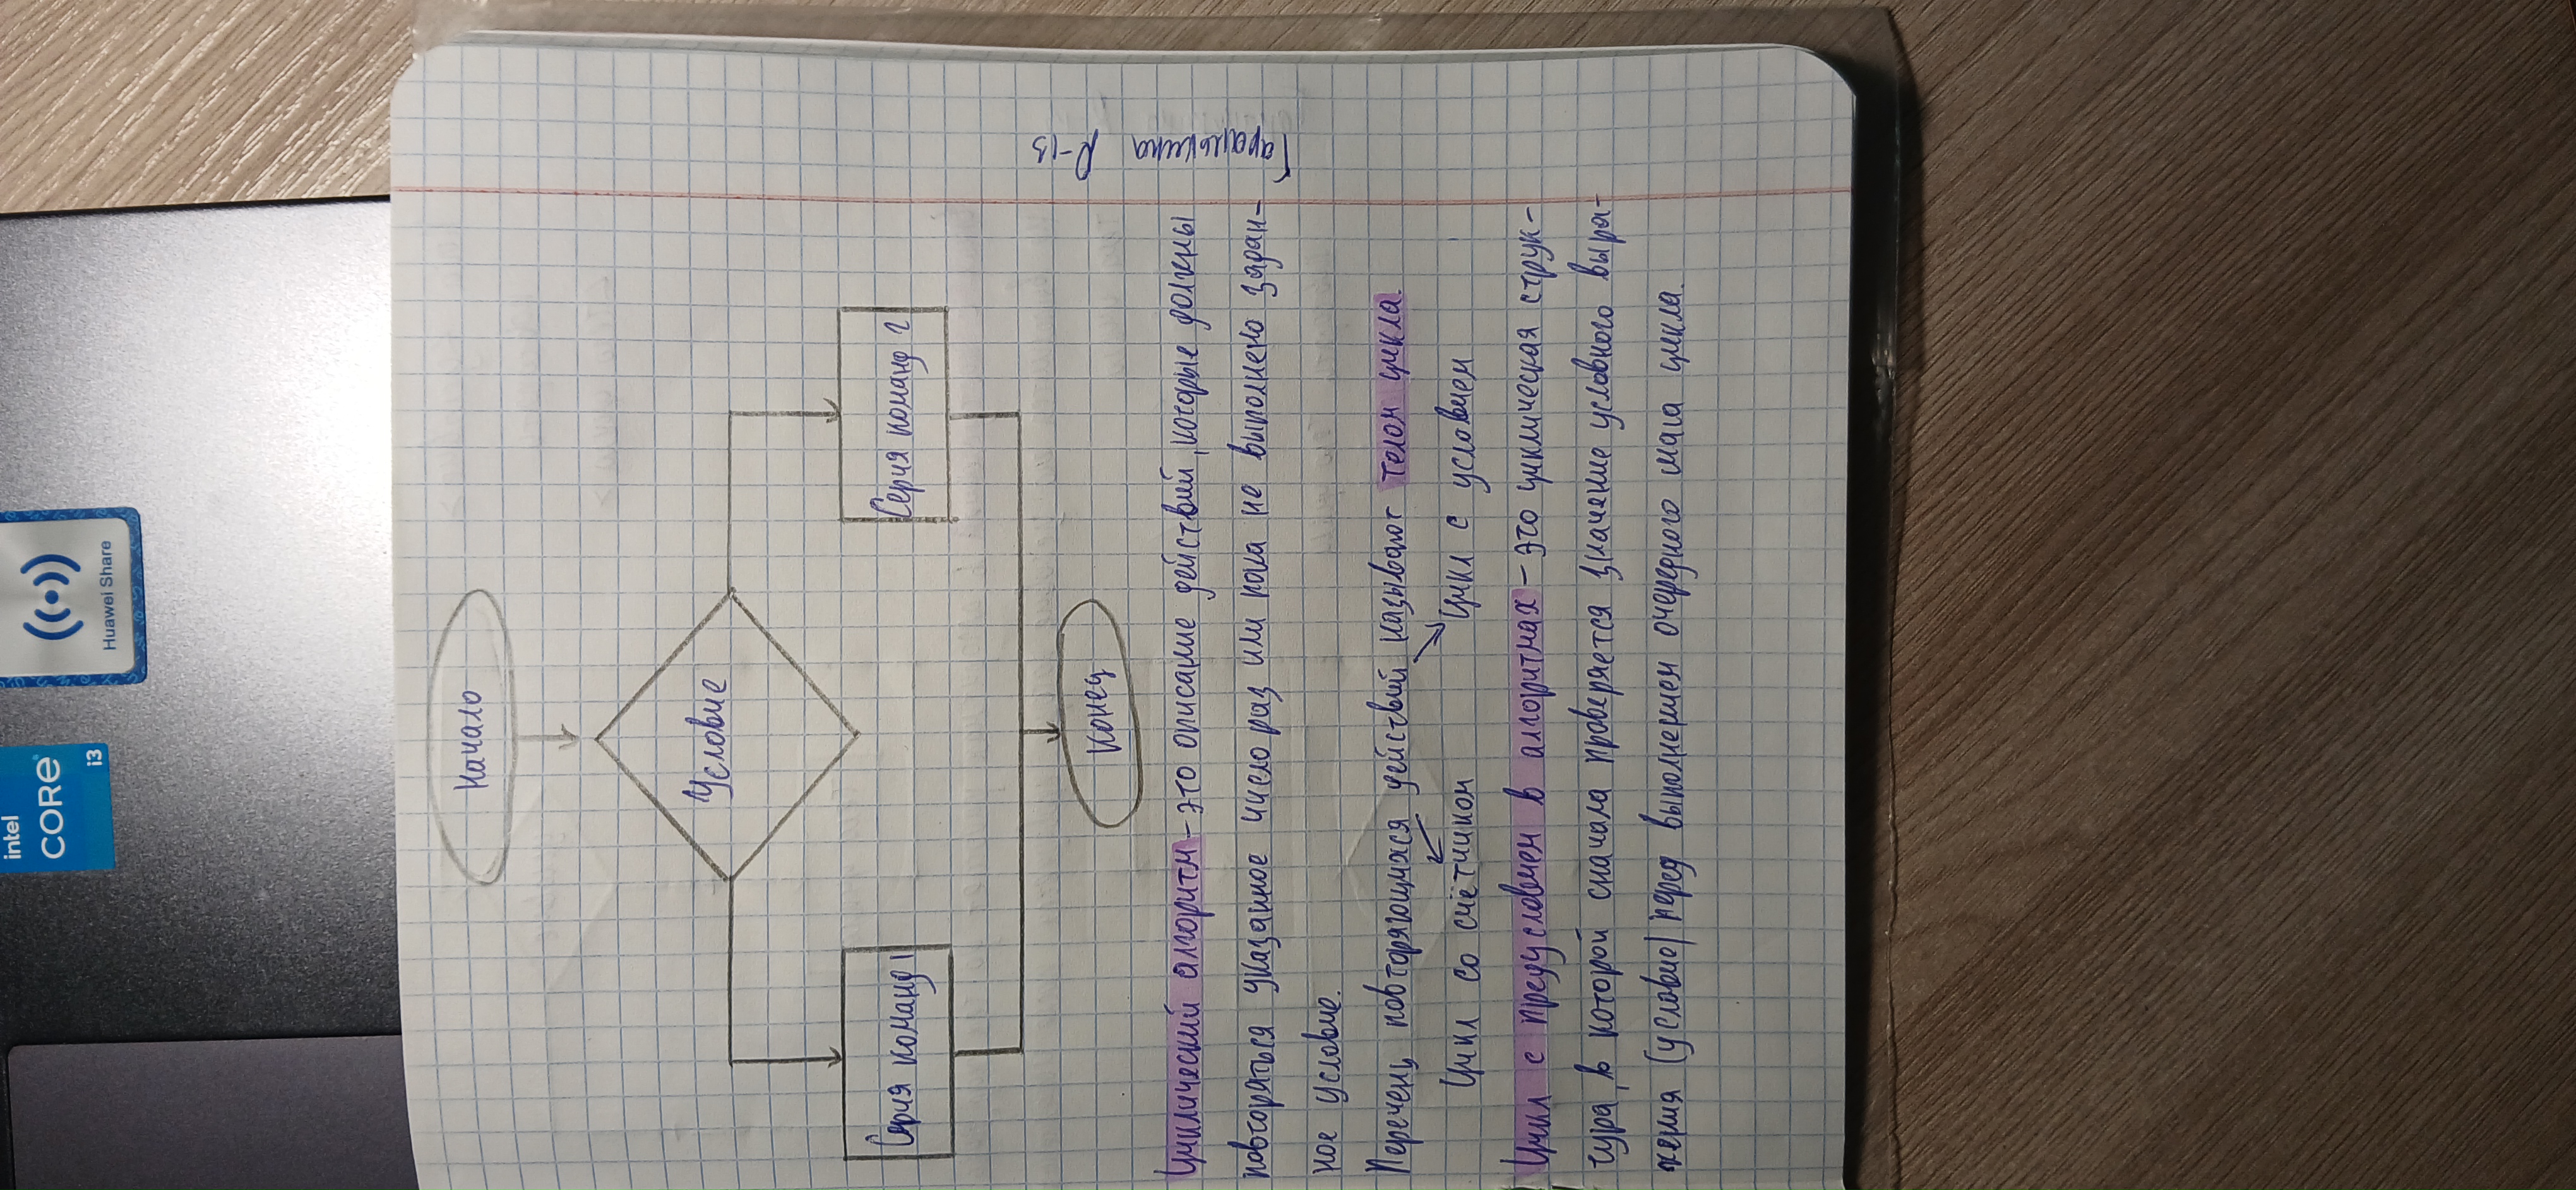 Начало
Условие
Серия команд 1
Серия команд 2
Конец
Циклический алгоритм - это описание действий, которые должны
повторяться указанное число раз или пока не выполнено задан-
ное условие.
Перечень повторяющихся действий называют телом цикла.
Цикл со счётчиком
Цикл с условием
Цикл с предусловием в алгоритмах - это циклическая струк-
тура, в которой сначала проверяется значение условного выра-
жения (условие) перед выполнением очередного шага цикла.
Гаранькина
Р-13
intel
CORE
i3
Huawei Share